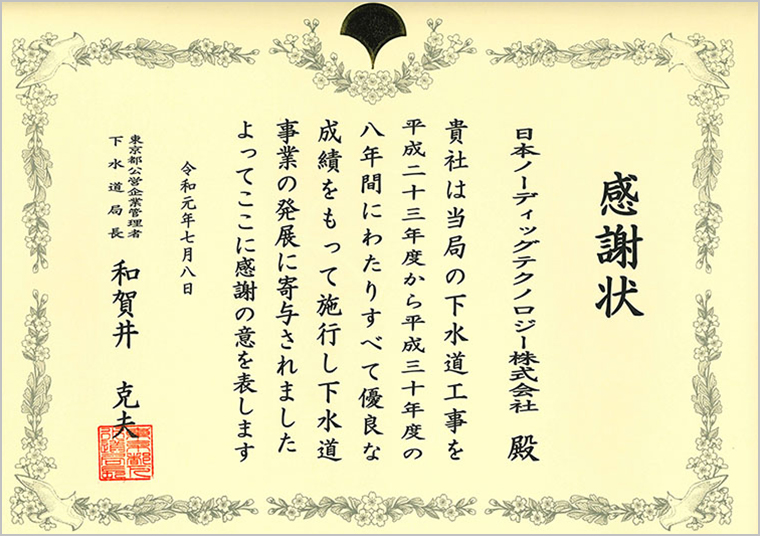 感謝状
日本ノーディッグテクノロジー株式会社 殿
貴社は当局の下水道工事を
平成二十三年度から平成三十年度の
八年間にわたりすべて優良な
成績をもって施行し下水道
事業の発展に寄与されました
よってここに感謝の意を表します
令和元年七月八日
東京都公営企業管理者
下水道局長 和賀井 克夫